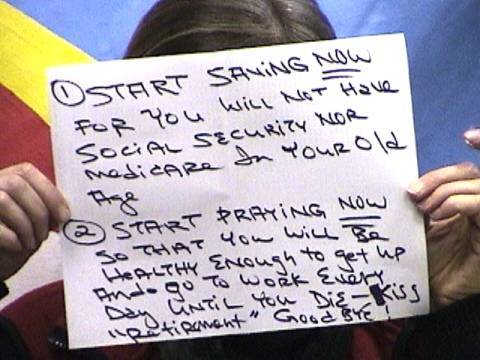 ① START SAVING NOW
FOR YOU WILL NOT HAVE
SOCIAL SECURITY NOR
MEDICARE IN YOUR Old
Age
② START PRAYING NOW
SO THAT YOU WILL BE
HEALTHY ENOUGH to get up
And go TO WORK EVERY
DAY UNTIL YOU DIE - KISS
"RETIREMENT" GOOD BYE!